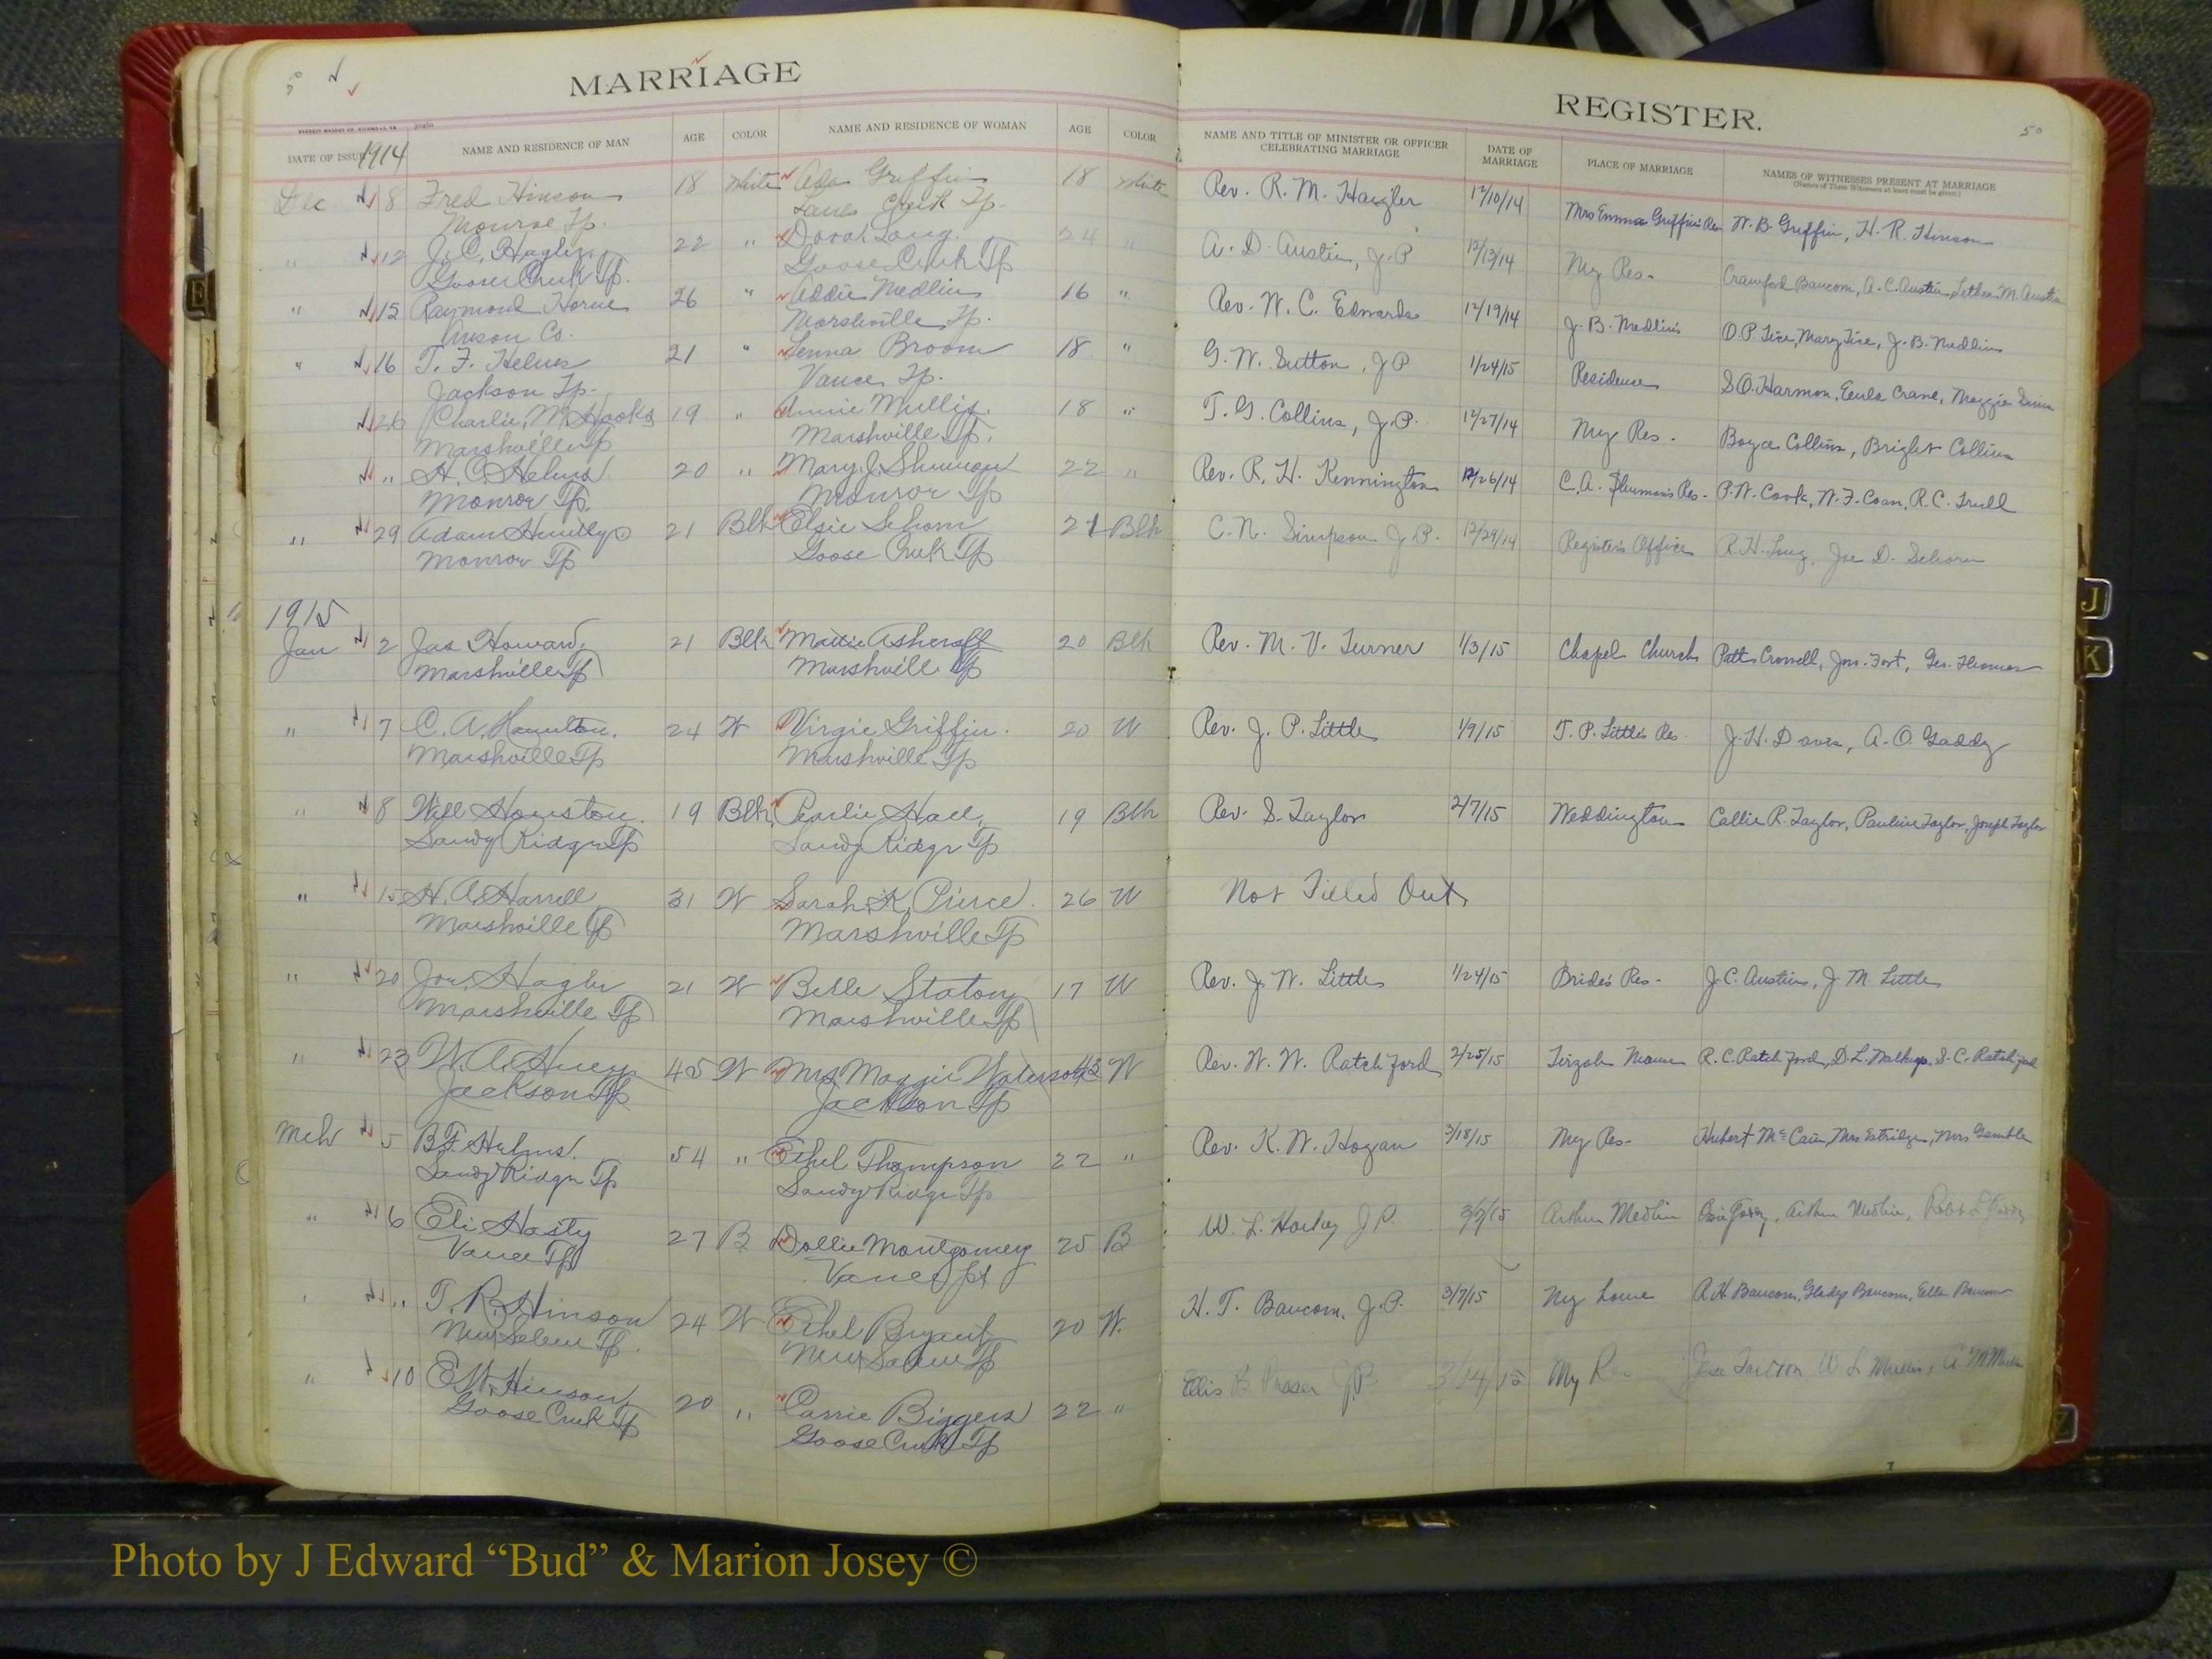 MARRIAGE
REGISTER.
50
DATE OF ISSUE 1914 NAME AND RESIDENCE OF MAN AGE COLOR NAME AND RESIDENCE OF WOMAN AGE COLOR
NAME AND TITLE OF MINISTER OR OFFICER CELEBRATING MARRIAGE DATE OF MARRIAGE PLACE OF MARRIAGE NAMES OF WITNESSES PRESENT AT MARRIAGE
(Names of Three Witnesses at least must be given.)
Dec 8 Fred Hinson 18 White Ada Griffin 18 White Rev. R. M. Haigler 12/10/14 Mrs Emma Griffin's Res W. B. Griffin, H. R. Hinson
Monroe Tp. Lanes Creek Tp.
" 12 J. C. Hagler 22 " Dorah Long 24 " A. D. Austin, J. P 12/13/14 My Res- Crawford Baucom, A. C. Austin, M. Austin
Goose Creek Tp. Goose Creek Tp
" 15 Raymond Horne 26 " Addie Medlin 16 " Rev. W. C. Edwards 12/19/14 J. B. Medlin's O. P. Tice, Mary Tice, J. B. Medlin
Anson Co. Marshville Tp.
" 16 T. F. Helms 21 " Lenna Broom 18 " G. W. Sutton, J P 1/24/15 Residence S. O. Harmon, Eula Crane, Maggie
Jackson Tp. Vance Tp.
26 Charlie M. Hooks 19 " Annie Mullis 18 " T. G. Collins, J. P. 12/27/14 My Res. Boyce Collins, Bright Collins
Marshville Tp Marshville Tp.
" H. C. Helms 20 " Mary J. 22 " Rev. R. H. Kennington 12/26/14 C. A. Res- P. W. Cook, W. F. Coan, R. C. Trull
Monroe Tp. Monroe Tp
" 29 Adam 21 Blk Elsie Sehorn 21 Blk C. N. Simpson J. P. 12/29/14 Register's Office R. H. Long, Joe D. Sehorn
Monroe Tp Goose Creek Tp
1915
Jan 2 Jas Howard, 21 Blk Mattie Ashcraft 20 Blk Rev. M. V. Turner 1/3/15 Chapel Church Patt Crowell, Jno. Fort, Geo. Thomas
Marshville Tp Marshville Tp
" 7 C. A. Hamilton. 24 W Virgie Griffin. 20 W Rev. J. P. Little 1/9/15 T. P. Little's Res. J. H. Davis, A. O. Gaddy
Marshville Tp Marshville Tp
" 8 Will Houston. 19 Blk Pearlie Hall, 19 Blk Rev. S. Taylor 2/7/15 Weddington Callie R. Taylor, Pauline Taylor, Joseph Taylor
Sandy Ridge Tp Sandy Ridge Tp
" 15 H. A. Harrell 31 W Sarah K. Pierce. 26 W Not Filled Out
Marshville Tp Marshville Tp
" 20 Jno. Hagler 21 W Belle Staton 17 W Rev. J. W. Little 1/24/15 Bride's Res- J. C. Austin, J. M. Little
Marshville Tp Marshville Tp
" 23 W. A. Huey 45 W Mrs Maggie Waterson 43 W Rev. W. W. Ratchford 2/25/15 Tirzah Manse R. C. Ratchford, D. L. Walkup, S. C. Ratchford
Jackson Tp Jackson Tp
Mch 5 B. F. Helms. 54 " Ethel Thompson 22 " Rev. K. W. Hogan 3/18/15 My Res- Hubert McCain, Mrs Estridge, Mrs Gamble
Sandy Ridge Tp Sandy Ridge Tp
" 6 Eli Hasty 27 B Dollie Montgomery 25 B W. L. J P. 3/7/15 Arthur Medlin Arthur Medlin,
Vance Tp Vance
" " T. R. Hinson 24 W Ethel Bryant 20 W. H. T. Baucom, J. P. 3/7/15 My home A. H. Baucom, Gladys Baucom, Ella Baucom
New Salem Tp. New Salem Tp
" 10 E. W. Hinson 20 " Carrie Biggers 22 " Ellis B. Presser J P 3/14/15 My
Goose Creek Tp Goose Creek Tp
J
K
Photo by J Edward “Bud” & Marion Josey ©